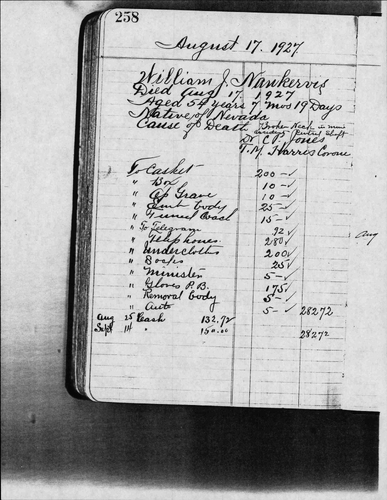 258
August 17, 1927
William J. Nankervis
Died Aug 17, 1927
Aged 54 years 7 mos 19 Days
Native of Nevada
Cause of Death Broken Neck in mine
Dr C.P. Jones
Harris Corone
To Casket 200 -
" Box 10 -
" Op Grave 10 -
" Emb body 25 -
" Funeral Coach 15 -
" To Telegram 92
" Telephones 280
" Undercloths 200
" Socks 25
" Minister 5 -
" Gloves P.B. 175
" Removal body 5 -
" Auto 5 - 28272
Aug 25 Cash 132.72
Sept 14 " 150.00 28272
Aug